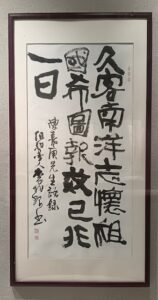 久客南洋志怀祖
國希圖報效已非
一日
陳嘉庚先生語錄